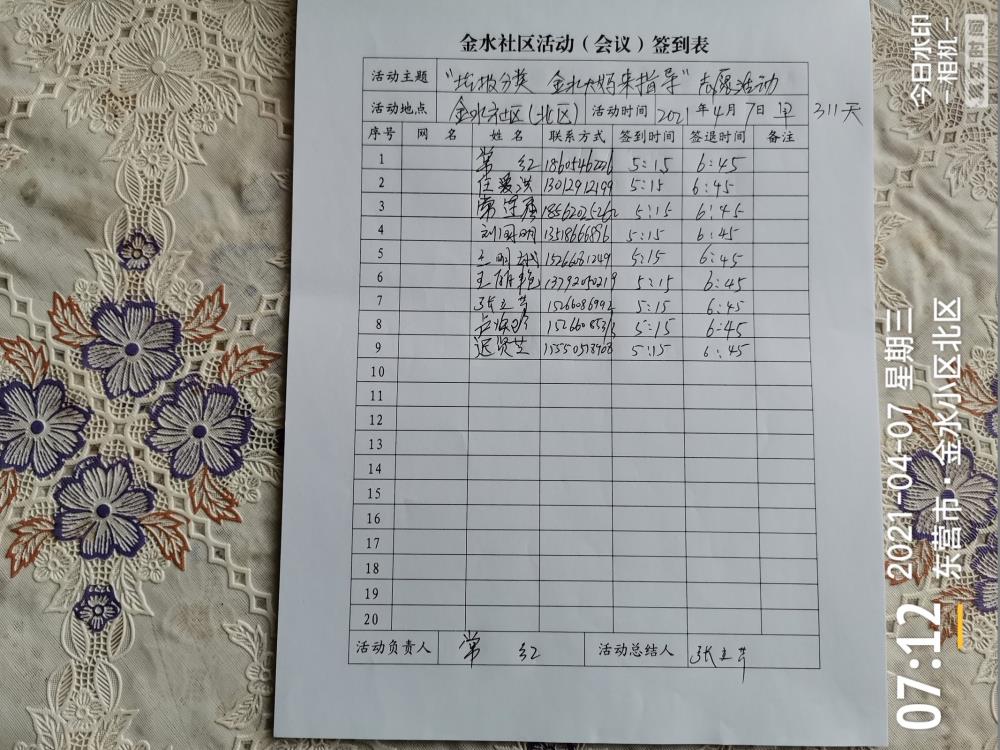 金水社区活动（会议）签到表
活动主题 "垃圾分类 金水大妈来指导"志愿活动
活动地点 金水社区(北区) 活动时间 2021年4月7日 早 311天
序号 网名 姓名 联系方式 签到时间 签退时间 备注
1 常红 18605462226 5:15 6:45
2 任爱洪 13012912199 5:15 6:45
3 18562025262 5:15 6:45
4 刘国明 13518666896 5:15 6:45
5 15266081249 5:15 6:45
6 王丽艳 13792090219 5:15 6:45
7 张立芹 15266086992 5:15 6:45
8 5:15 6:45
9 迟贤芝 5:15 6:45
10
11
12
13
14
15
16
17
18
19
20
活动负责人 常红 活动总结人 张立芹
07:12 2021-04-07 星期三
东营市·金水小区北区
今日水印
-相机-
真实时间